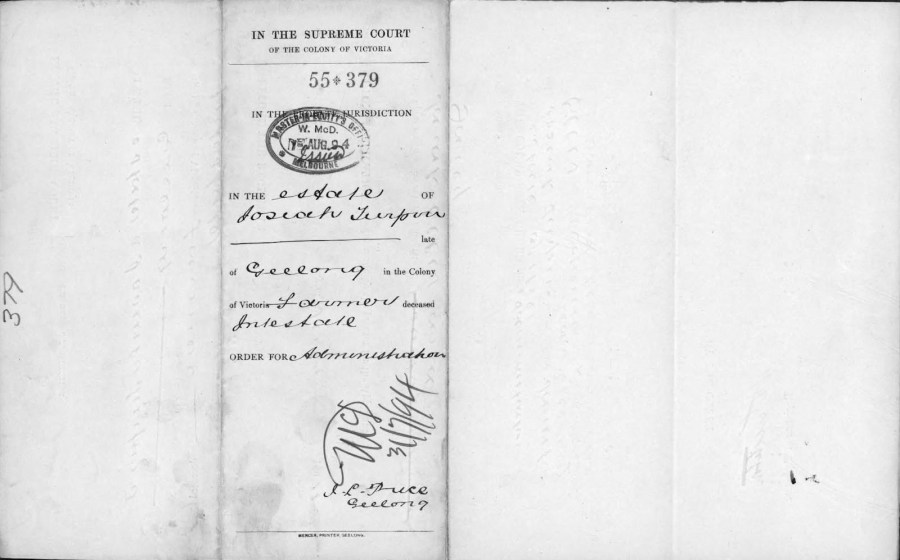 IN THE SUPREME COURT
OF THE COLONY OF VICTORIA
55 379
IN THE PROBATE JURISDICTION
MASTER-IN-EQUITY'S OFFICE
W. McD.
AUG. 94
Issued
MELBOURNE
IN THE estate OF
Josiah Turpin
late
of Geelong in the Colony
of Victoria Farmer deceased
Intestate
ORDER FOR Administration
31/7/94
Price
Geelong
MERCER, PRINTER GEELONG.
379